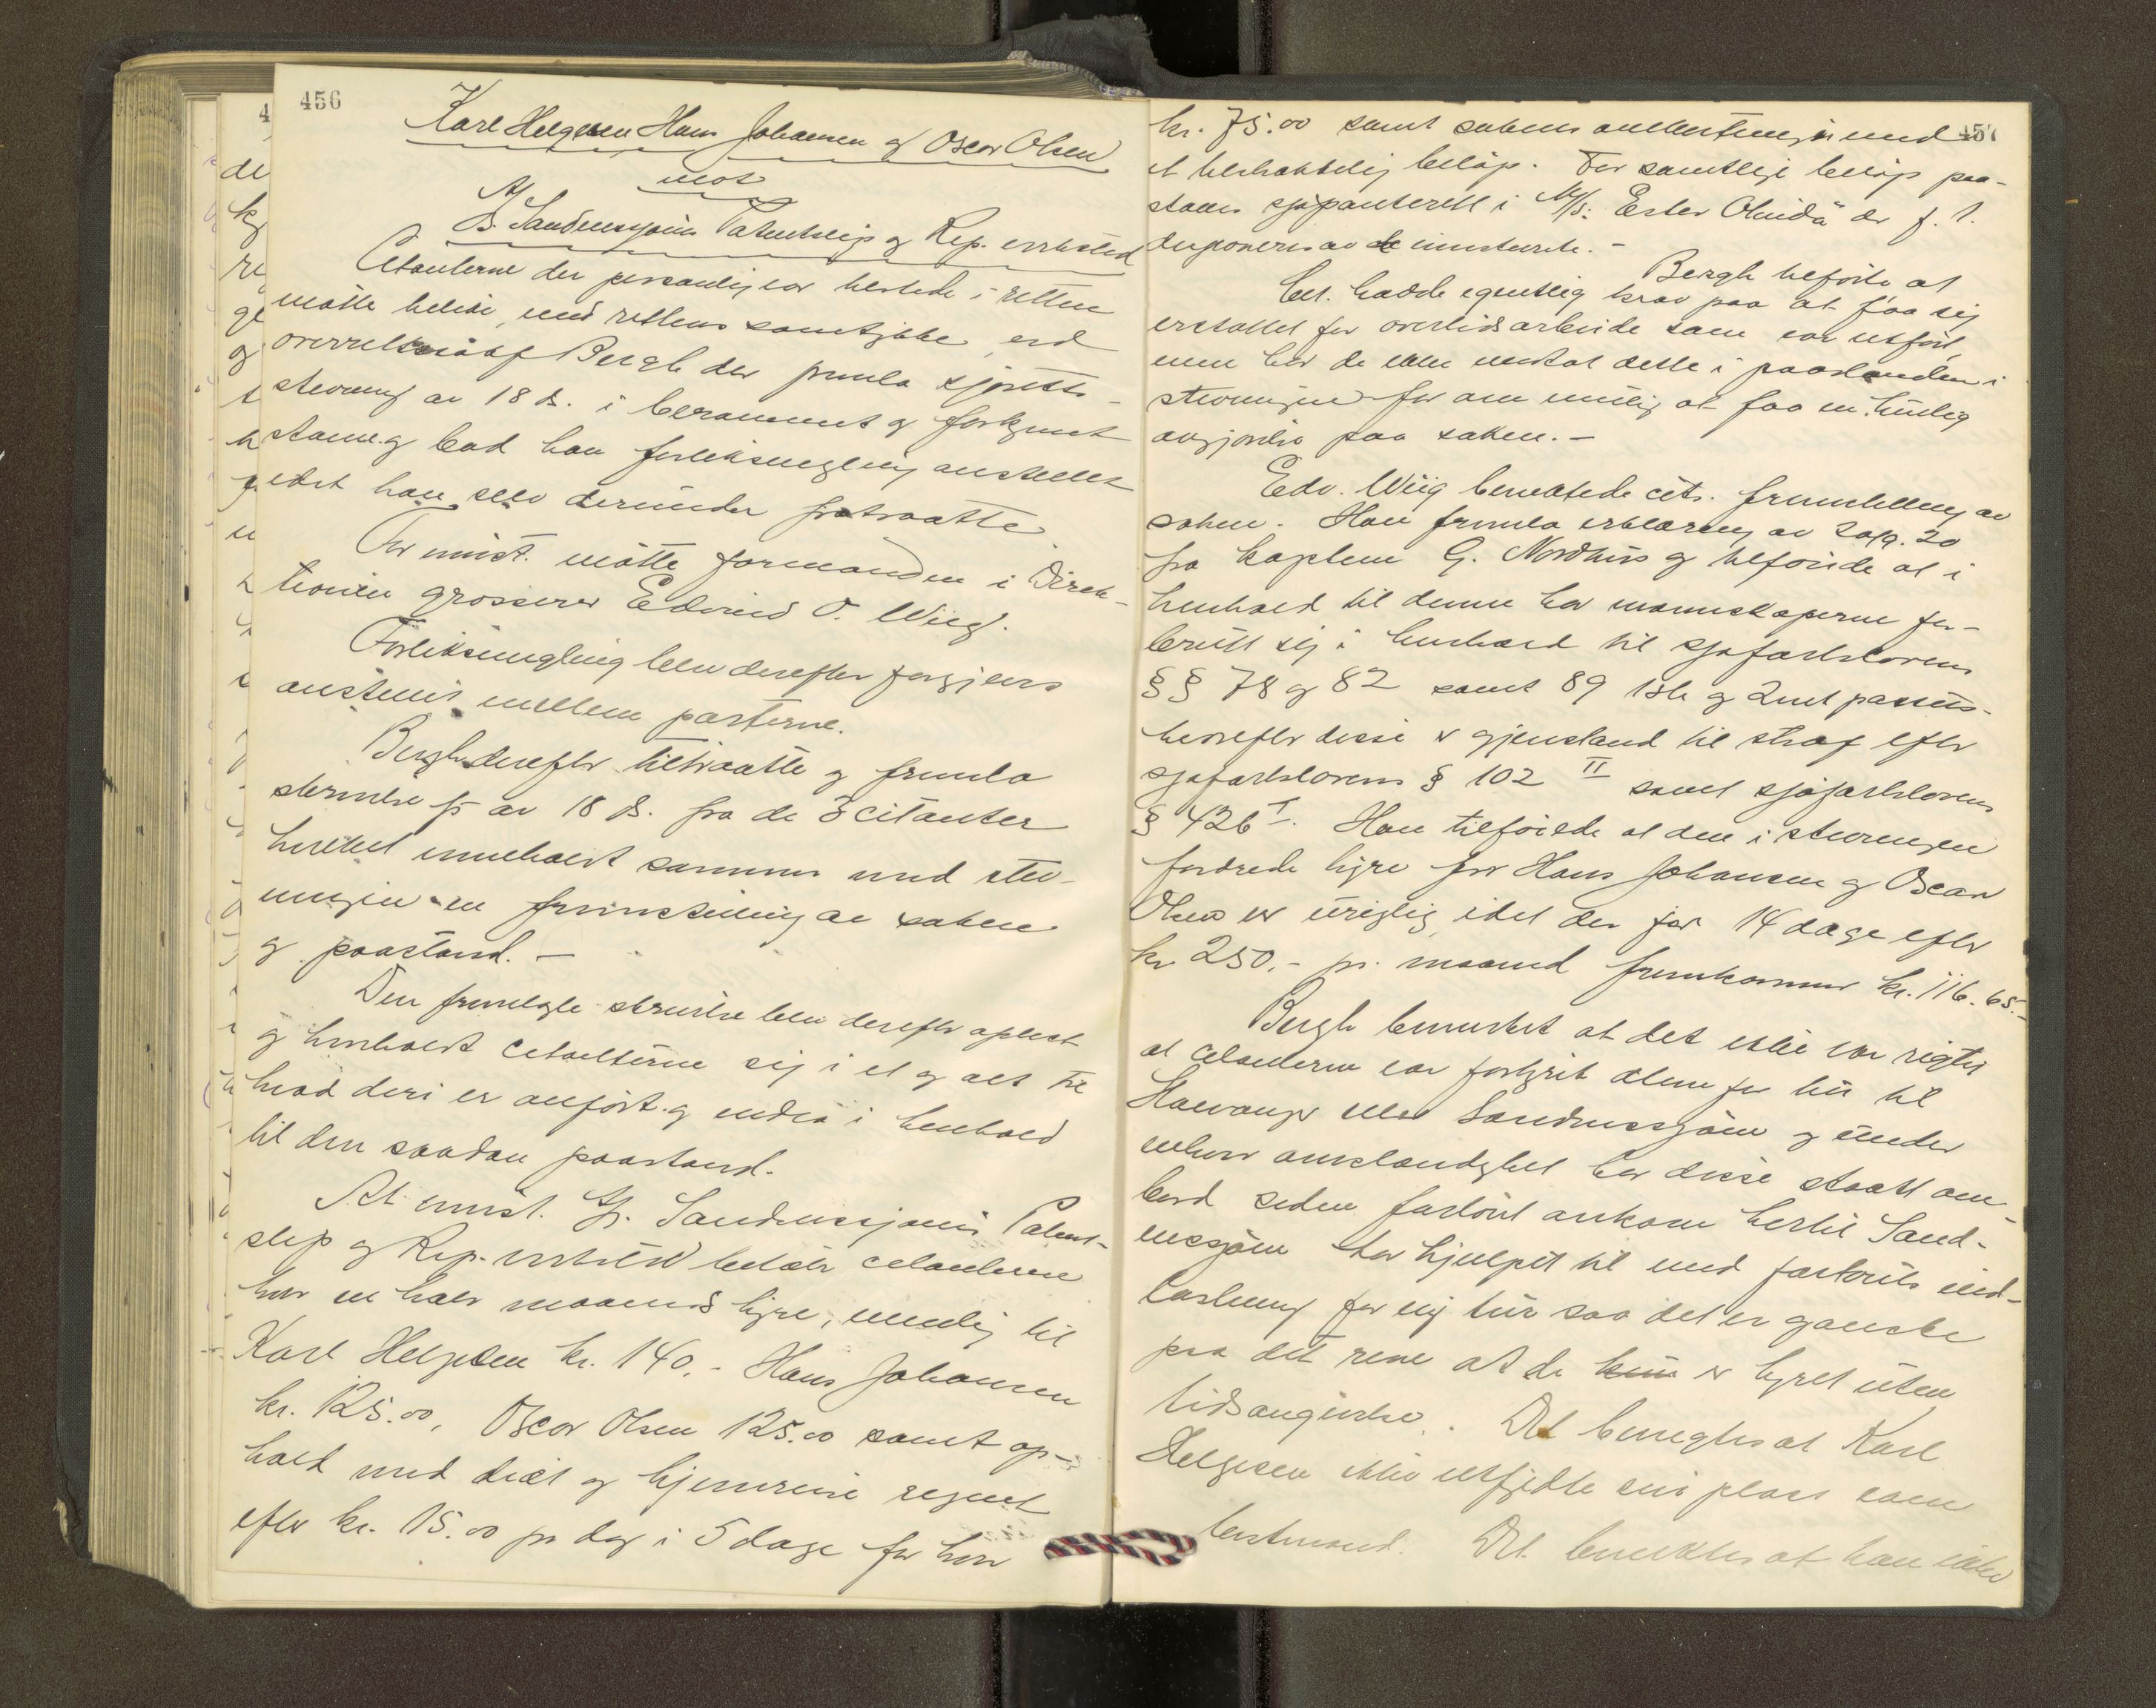 456
Karl Helgesen Hans Johansen og Oscar Olsen
mot
A/S Sandnessjøens Patentslip og Rep. verksted
Citanterne der personlig var tilstede i retten
møtte tillike, med rettens samtykke, ved
overretssakf Bergh der fremla sjøretts-
stevning av 18 ds. i berammet og forkynt
stand og bad han forliksmegling anstillet
idet han selv derunder fratraatte.
For innst. møtte formanden i Direk-
tionen grosserer Edvind O. Wiig.
Forliksmegling blev derefter forgjæves
anstillet mellem parterne.
Bergh derefter tiltraatte og fremla
skrivelse av 18 ds. fra de 3 citanter
hvilket inneholdt sammen med stev-
ningen en fremstilling av saken
og paastand. -
Den fremlagte skrivelse blev derefter oplest
og henholdt citanterne sig i et og alt til
hvad deri er anført og nedla i henhold
til den saadan paastand.
At innst. A/S. Sandnessjøens Patent-
slip og Rep. verksted betaler citanterne
hver en halv maaneds hyre, nemlig til
Karl Helgesen kr. 140.- Hans Johansen
kr. 125.00, Oscar Olsen 125.00 samt op-
hold med diæt og hjemreise regnet
efter kr. 15.00 pr dag i 5 dage for hver
457
kr. 75.00 samt sakens omkostninger med
et tilstrækkelig beløp. For samtlige beløp paa-
staaes sjøpanterett i M/S. "Ester Olinda" der f. t.
disponeres av de innstevnte. -
Bergh tilførte at
cit. hadde egentlig krav paa at faa sig
erstattet for overtidsarbeide som var utført,
men har de ikke medtat dette i paastanden i
stevningen for om mulig at faa en hurtig
avgjørelse paa saken. -
Edv. Wiig benektede cits. fremstilling av
saken. Han fremla erklæring av 20/9. 20
fra kaptein G. Nordhus og tilføiede at i
henhold til denne har mannskaperne for-
brutt sig i henhold til sjøfartsloven
§ § 78 og 82 samt 89 1ste og 2net passus
hvorefter disse er gjenstand til straf efter
sjøfartslovens § 102 II samt sjøfartslovens
§ 426 I. Han tilføiede at den i stevningen
fordrede hyre for Hans Johansen og Oscar
Olsen er uriktig, idet der for 14 dage efter
kr 250.- pr. maaned fremkommer kr. 116.65.-
Bergh bemerket at det ikke var rigtig
at citanterne var forhyret alene for tur til
Stavanger eller Sandnessjøen og under
enhver omstændighet har disse staatt om-
bord siden fartøiet ankom hertil Sand-
nessjøen har hjulpet til med fartøiets ind-
lastning for ny tur saa det er ganske
paa det rene at de kun er hyret uten
tidsangivelse. Det benegtes at Karl
Helgesen ikke utfyldte sin plass som
bestmand. Det benektes at han ikke